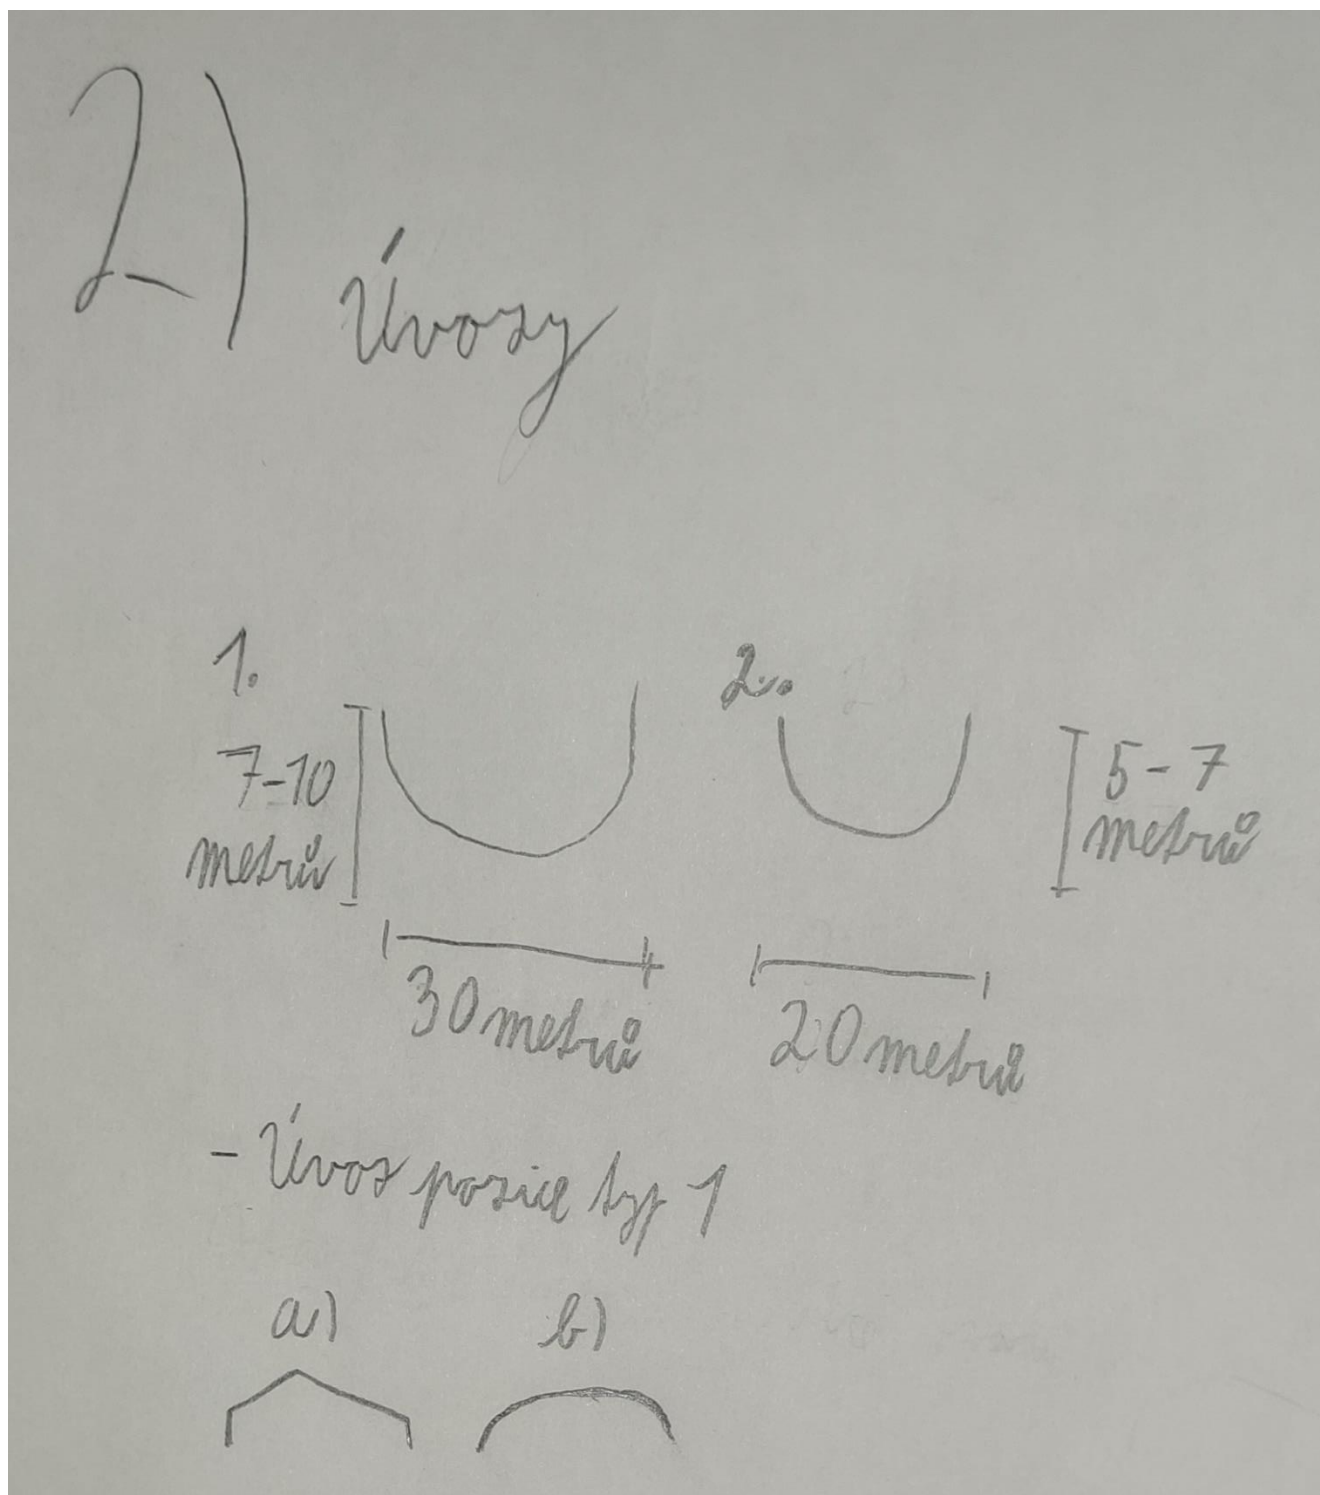 2)
Úvozy
1.
2.
7-10
metrů
5-7
metrů
30 metrů
20 metrů
- Úvoz pozice typ 1
a)
b)